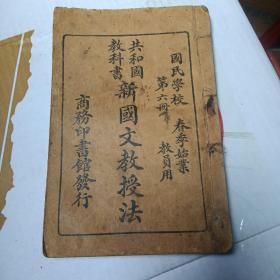 國民學校 春季始業
第六冊 教員用
共和國
教科書
新國文教授法
商務印書館發行